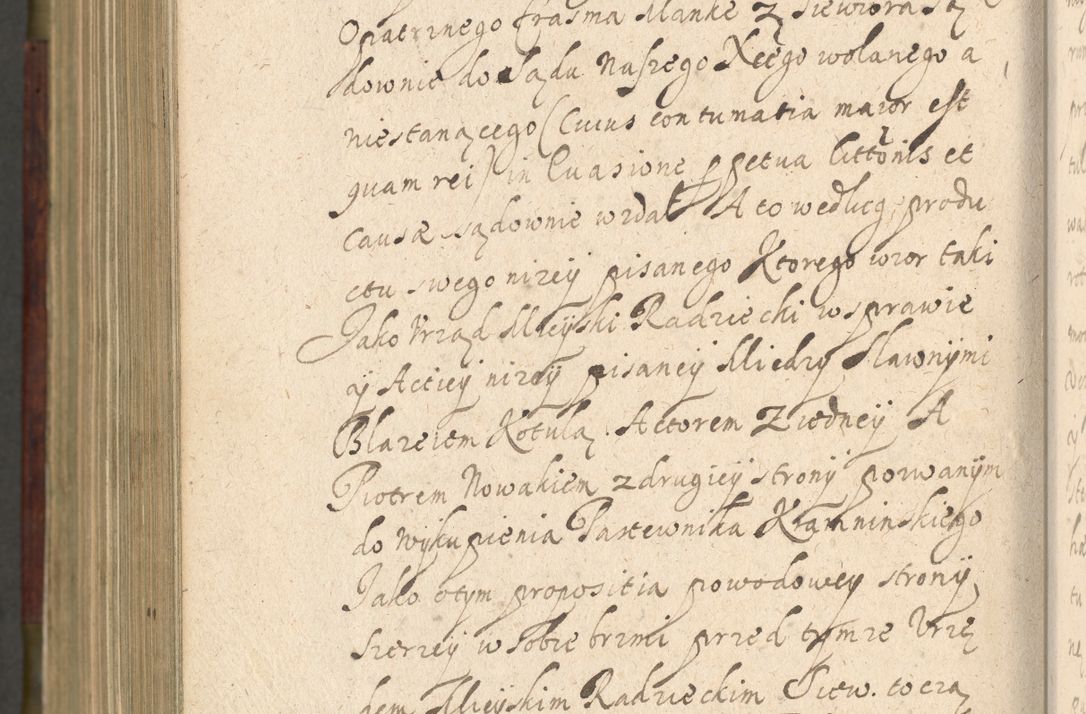 Opatrznego Erasma Manke z Siewiora Są
downie do Sądu Naszego Xcego wolanego a
niestanącego (Cuius contumatia maior est
quam rei) in Euasione ppetua littōnis et
Causæ sądownie wzdał A to według produ
ctu swego niżey pisanego Ktorego wzor taki
Jako Vrząd Mieyski Radziecki w sprawie
ÿ Actiey niżey pisaney Miedzy Sławnÿmi
Błazeiem Kotulą Actorem z iedneÿ A
Piotrem Nowakiem z drugieÿ stronÿ pozwanÿm
do wÿkupienia Pasternika Kramninskiego
Jako o tym propositia powodoweÿ stronÿ
szerzeÿ w sobie brzmi przed tymże Vrzę
dem Mieÿskim Radzieckim Siew. toczą